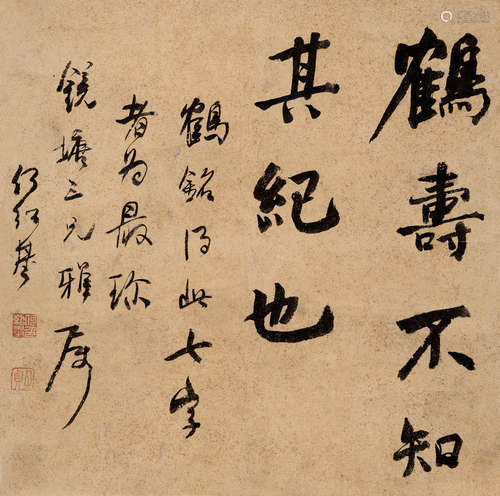 鶴壽不知
其紀也
鶴銘得此七字
者為最珎
鏡塘三兄雅属
何紹基